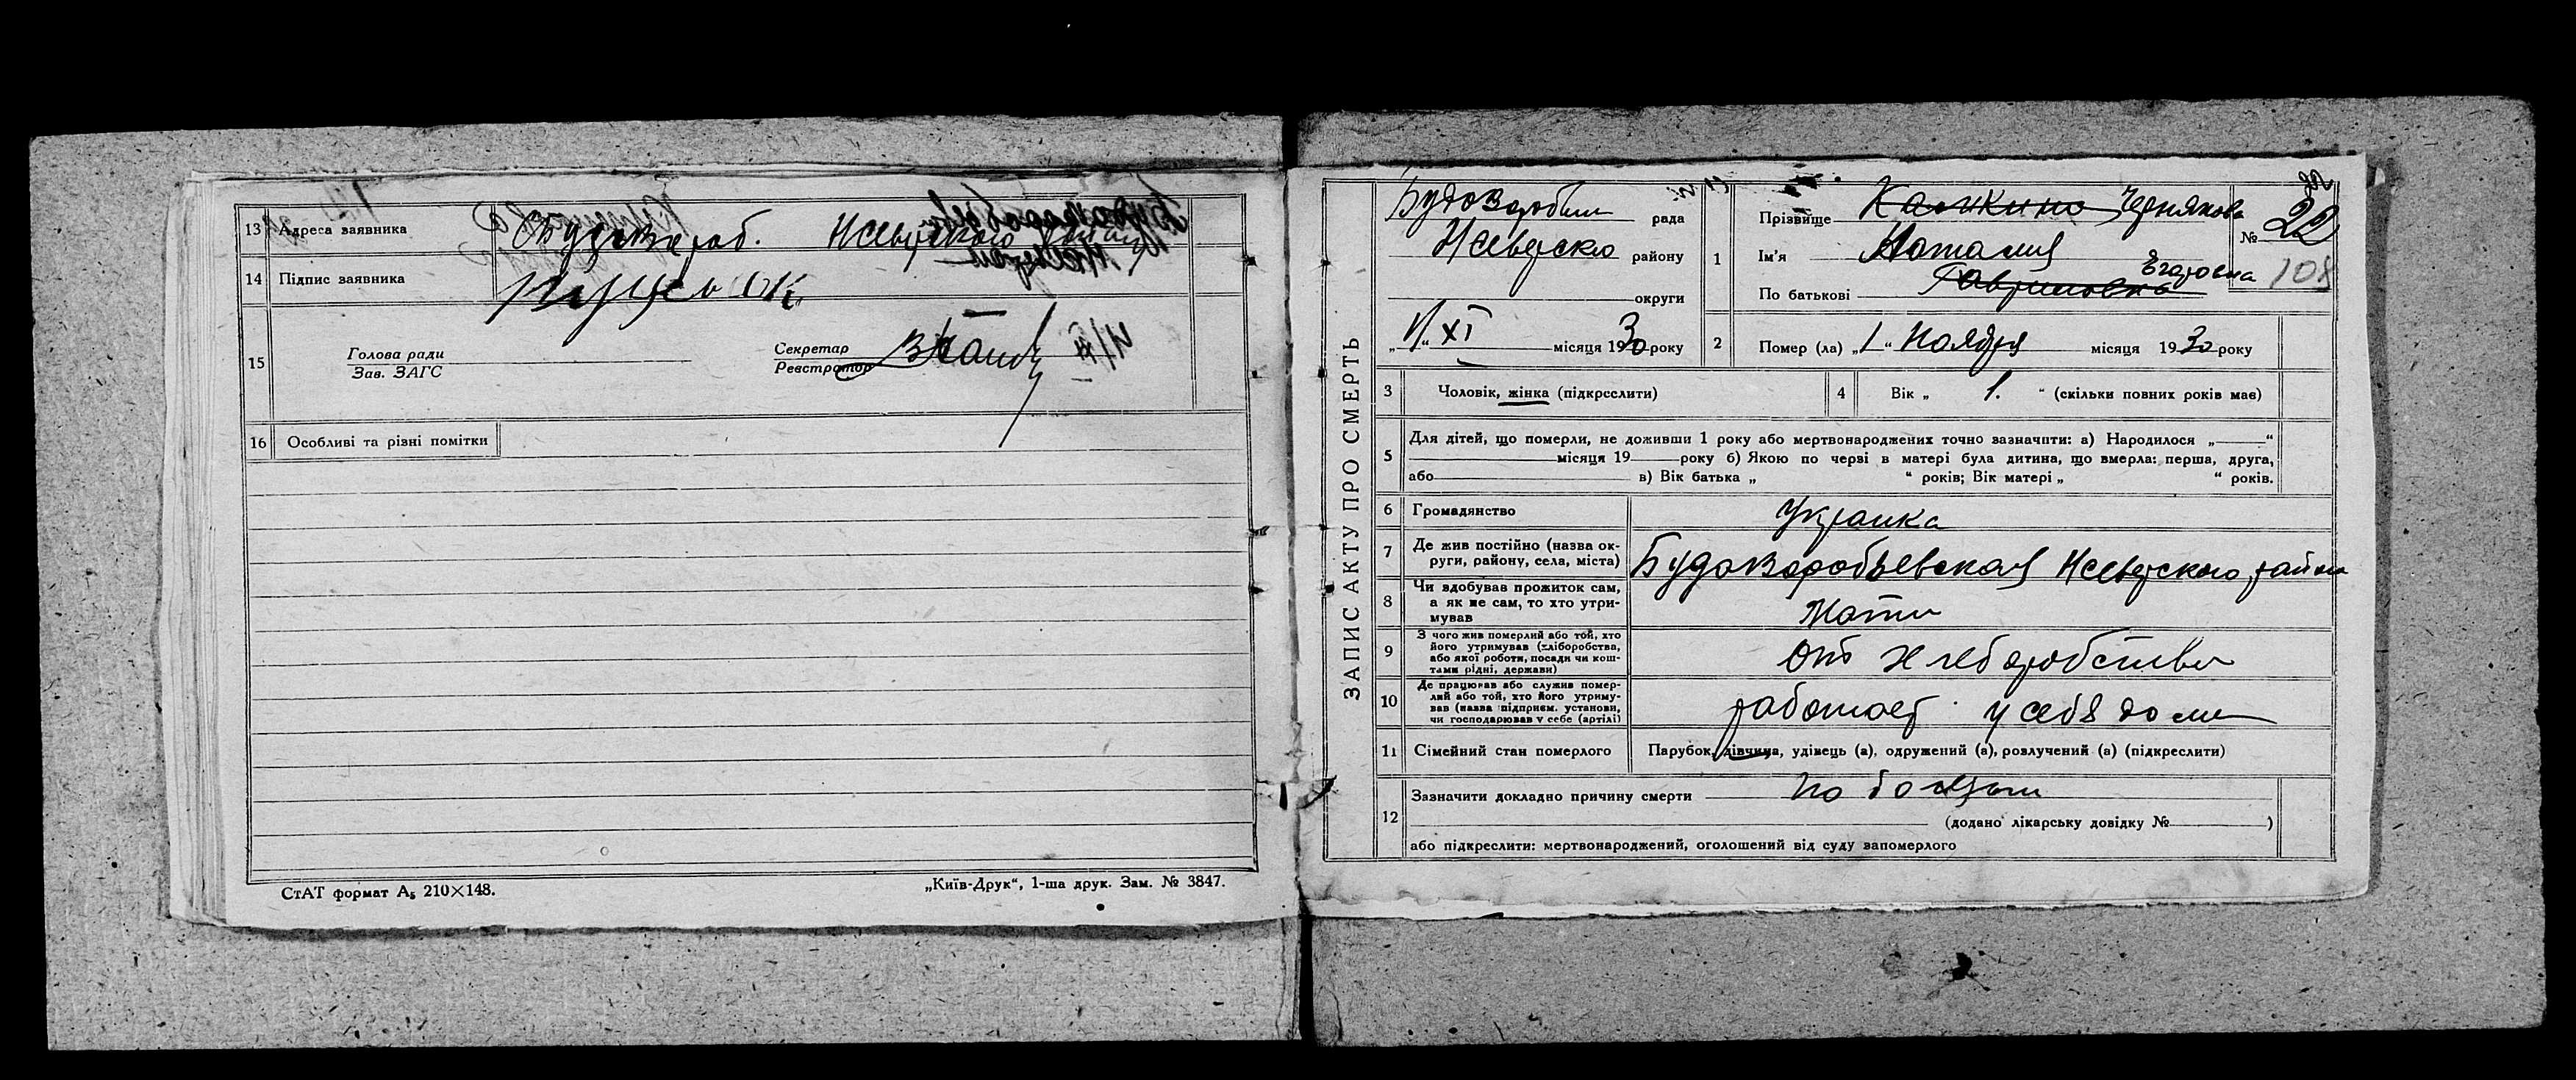 13 Адреса заявника
14 Підпис заявника
15 Голова ради
Зав. ЗАГС
Секретар
Реєстратор
16 Особливі та різні помітки
СтАТ формат А5 210×148.
„Київ-Друк“, 1-ша друк. Зам. № 3847.
ЗАПИС АКТУ ПРО СМЕРТЬ
рада
району
округи
XI місяця 1930 року
1 Прізвище Чернякова
Ім'я Наталия
По батькові Гавриловна Егоровна
№ 22
108
2 Помер (ла) „1“ Ноября місяця 1930 року
3 Чоловік, жінка (підкреслити)
4 Вік „ 1. “ (скільки повних років має)
5 Для дітей, що померли, не доживши 1 року або мертвонароджених точно зазначити: а) Народилося „ “
місяця 19 року б) Якою по черві в матері була дитина, що вмерла: перша, друга,
або в) Вік батька „ “ років; Вік матері „ “ років.
6 Громадянство Украинка
7 Де жив постійно (назва ок-
руги, району, села, міста) Будоворобьевская Нсеверского района
8 Чи здобував прожиток сам,
а як не сам, то хто утри-
мував Мати
9 З чого жив померлий або той, хто
його утримував (хліборобства,
або якої роботи, посади чи кош-
тами рідні, держави) От хлеборобства
10 Де працював або служив помер-
лий або той, хто його утриму-
вав (назва підприєм. установи,
чи господарював у себе (артілі) работает у себя доме
11 Сімейний стан померлого Парубок, дівчина, удівець (а), одружений (а), розлучений (а) (підкреслити)
12 Зазначити докладно причину смерти
(додано лікарську довідку № )
або підкреслити: мертвонароджений, оголошений від суду запомерлого